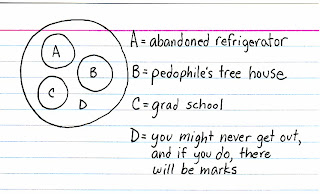 A
B
C
D
A = abandoned refrigerator
B = pedophile's tree house
C = grad school
D = you might never get out,
and if you do, there
will be marks